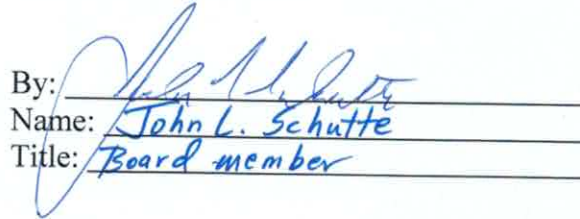 By:
Name: John L. Schutte
Title: Board member